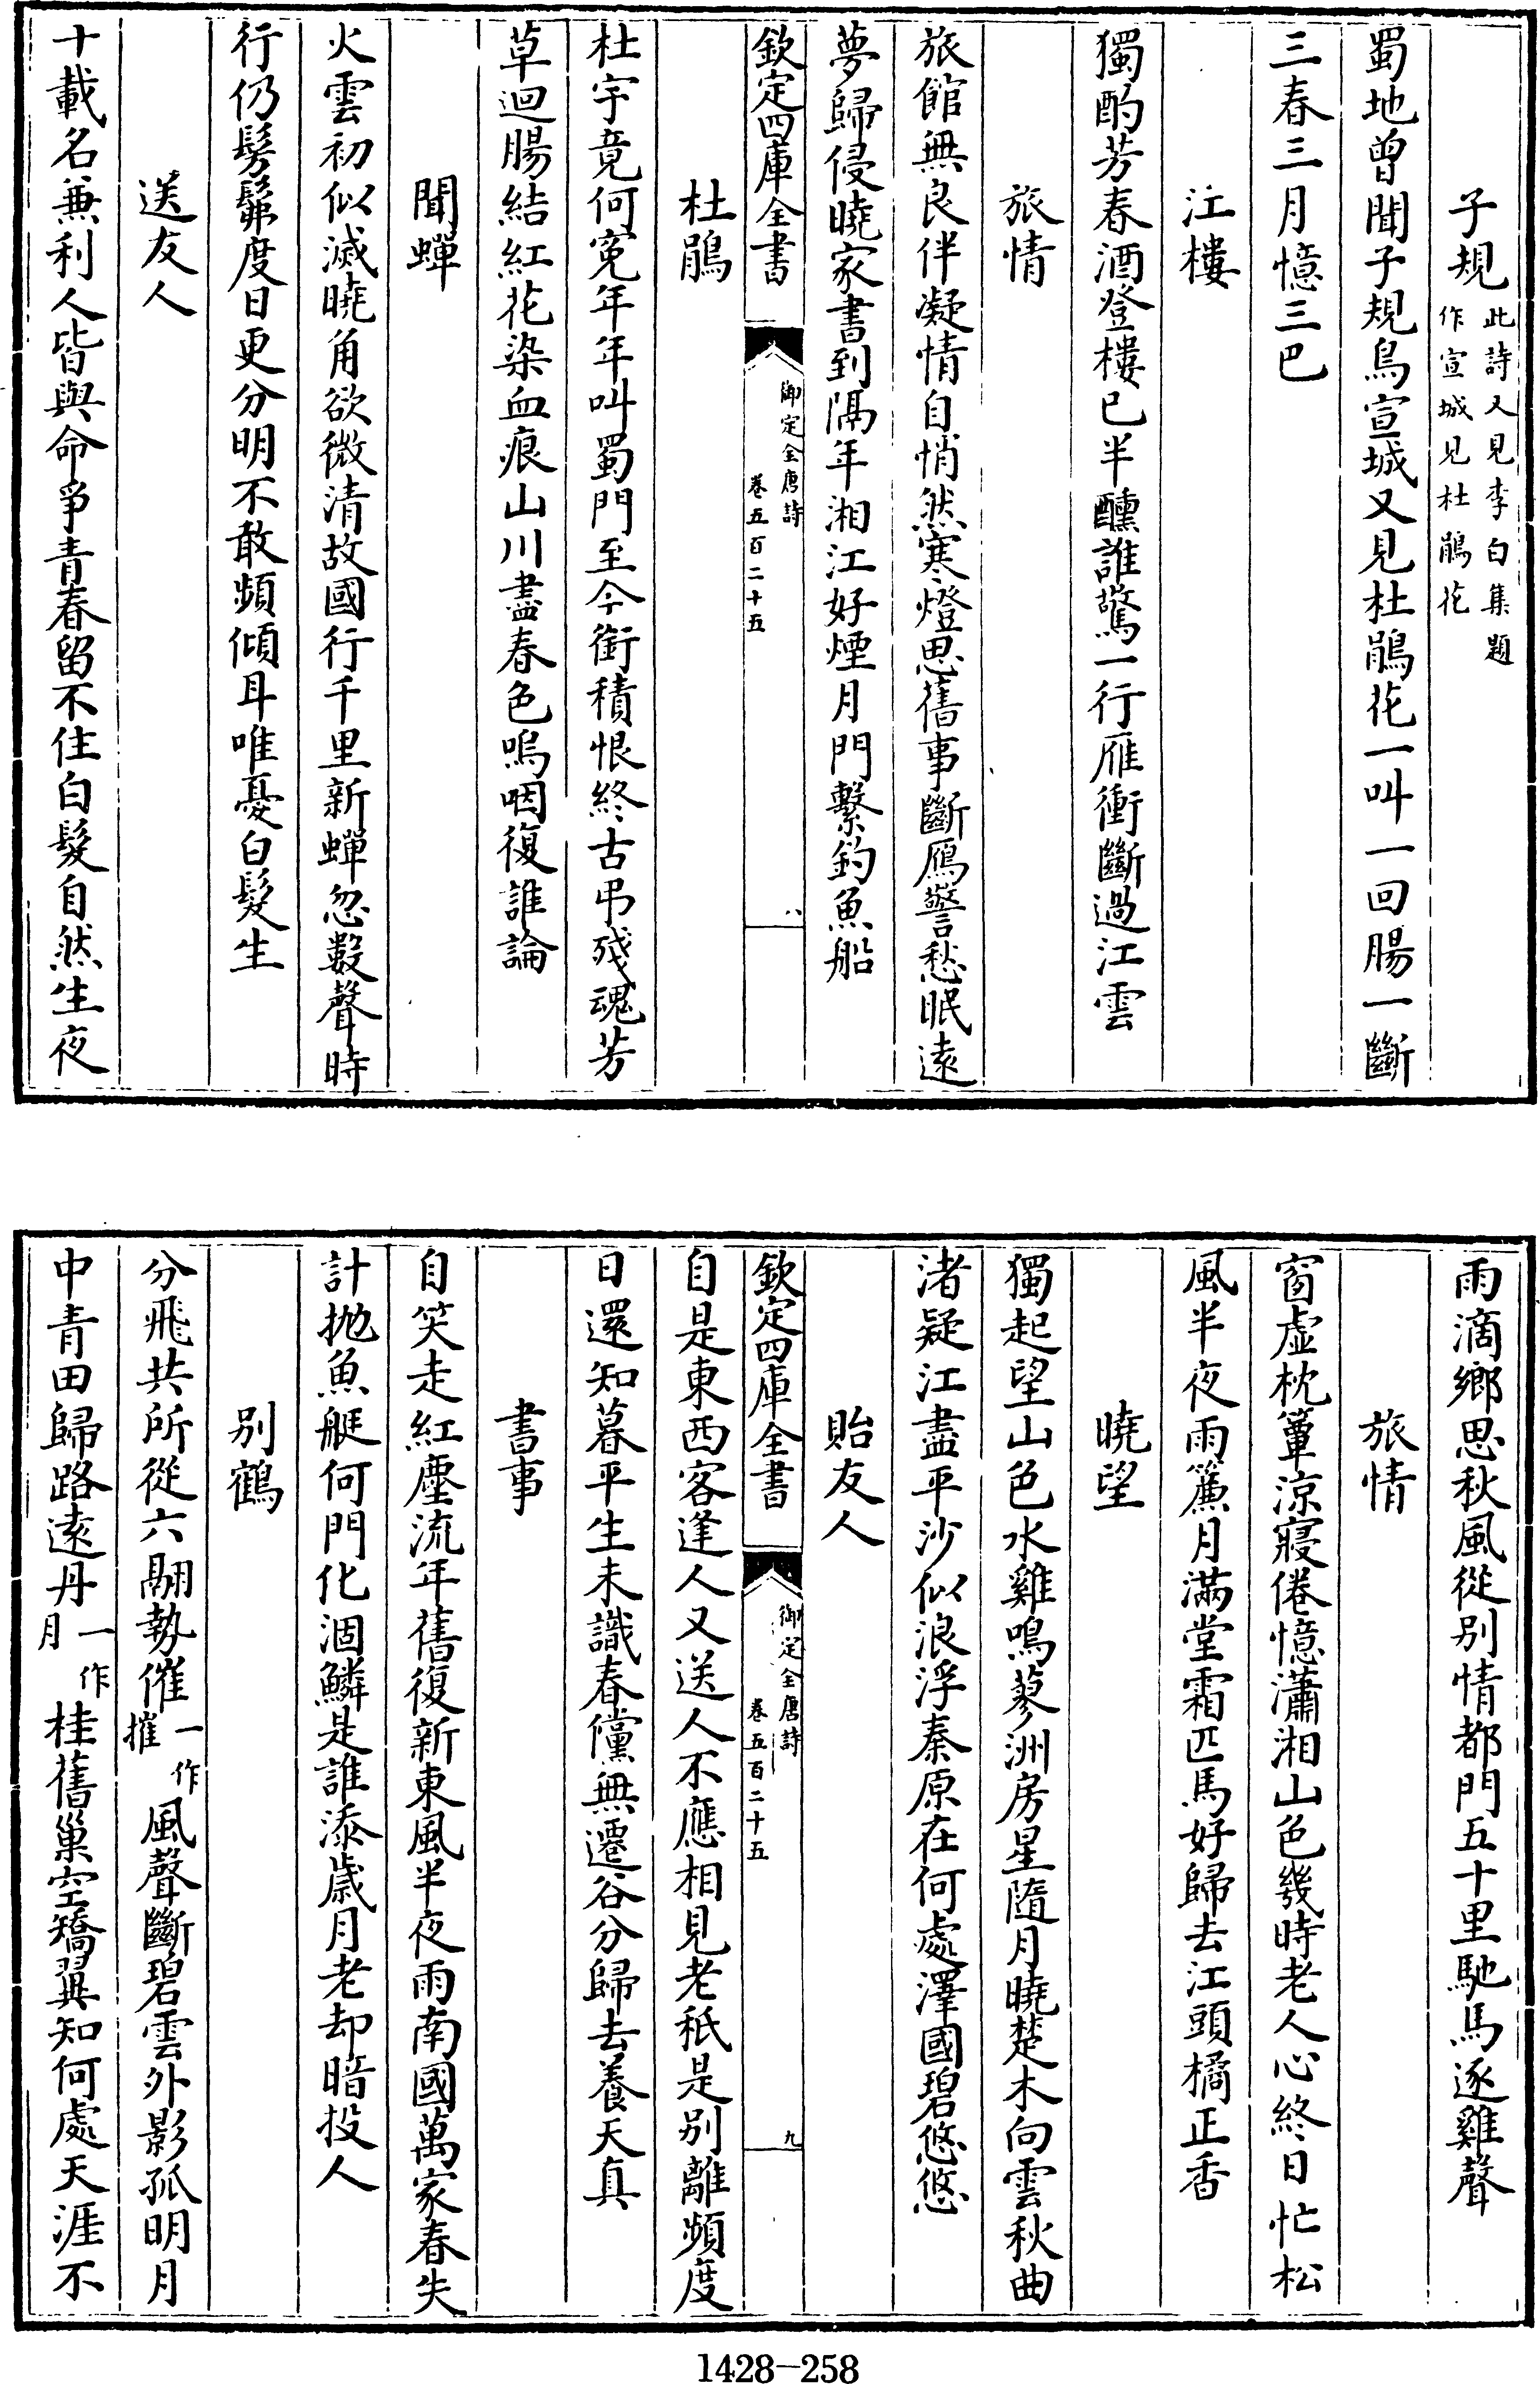 子規此詩又見李白集題
作宣城見杜鵑花
蜀地曾聞子規鳥宣城又見杜鵑花一叫一回腸一斷
三春三月憶三巴
江樓
獨酌芳春酒登樓已半醺誰驚一行雁衝斷過江雲
旅情
旅館無良伴凝情自悄然寒燈思舊事斷鴈警愁眠遠
夢歸侵曉家書到隔年湘江好煙月門繫釣魚船
欽定四庫全書
御定全唐詩
卷五百二十五
八
杜鵑
杜宇竟何寃年年叫蜀門至今銜積恨終古弔殘魂芳
草迴腸結紅花染血痕山川盡春色嗚咽復誰論
聞蟬
火雲初似滅曉角欲微清故國行千里新蟬忽數聲時
行仍髣髴度日更分明不敢頻傾耳唯憂白髮生
送友人
十載名兼利人皆與命爭青春留不住白髮自然生夜
雨滴鄉思秋風從別情都門五十里馳馬逐雞聲
旅情
窗虛枕簟涼寢倦憶瀟湘山色幾時老人心終日忙松
風半夜雨簾月滿堂霜匹馬好歸去江頭橘正香
曉望
獨起望山色水雞鳴蓼洲房星隨月曉楚木向雲秋曲
渚疑江盡平沙似浪浮秦原在何處澤國碧悠悠
貽友人
欽定四庫全書
御定全唐詩
卷五百二十五
九
自是東西客逢人又送人不應相見老秖是別離頻度
日還知暮平生未識春儻無遷谷分歸去養天真
書事
自笑走紅塵流年舊復新東風半夜雨南國萬家春失
計拋魚艇何門化涸鱗是誰添歲月老却暗投人
別鶴
分飛共所從六翮勢催一作摧風聲斷碧雲外影孤明月
中青田歸路遠丹一作月桂舊巢空矯翼知何處天涯不
1428-258